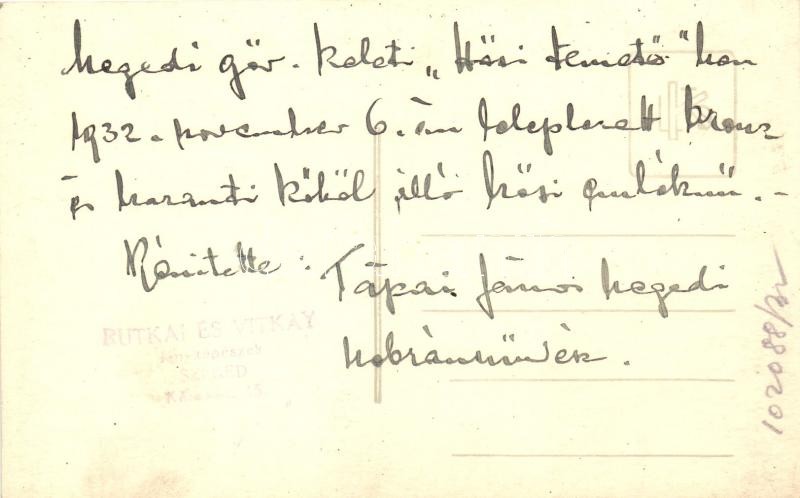 szegedi gör. keleti „Hősi temető"ben
1932. november 6.-án leleplezett bronz
és haraszti kőből álló hősi emlékmű. -
Készítette : Tápai János szegedi
szobrászművész.
RUTKAI ÉS VITKAY
fényképészek
SZEGED
102088/32